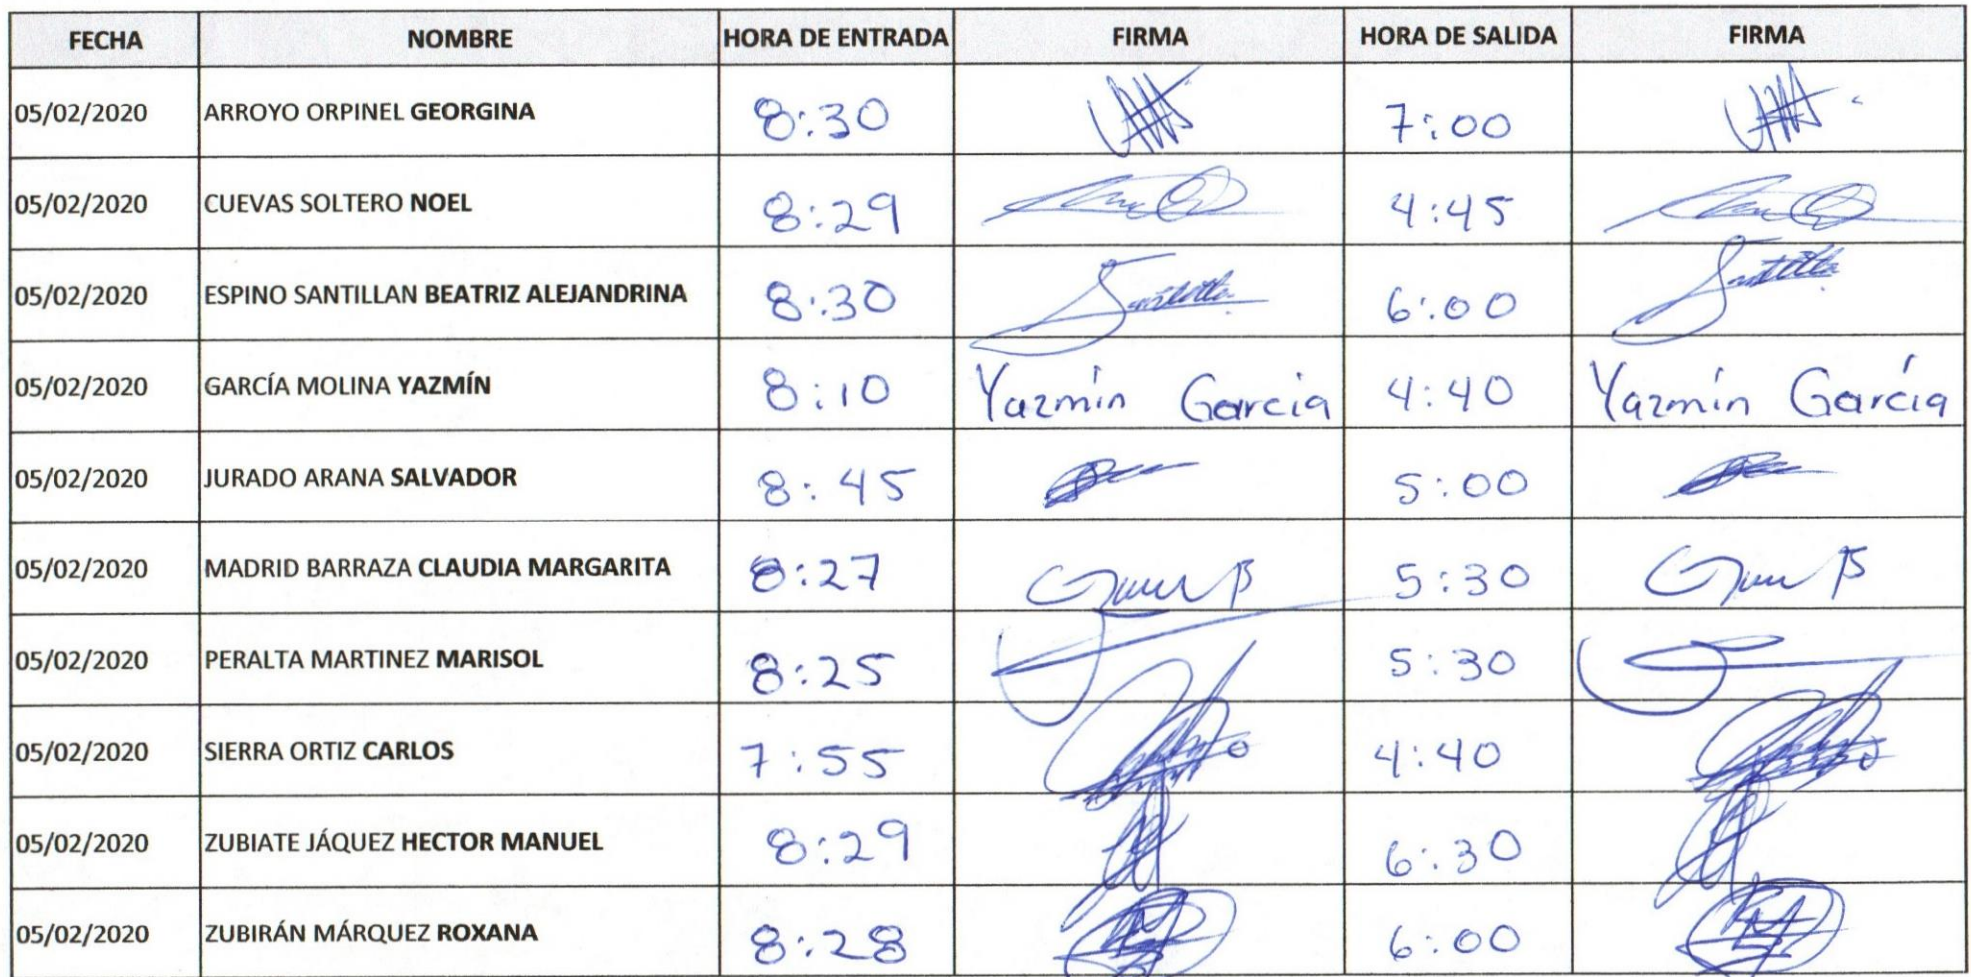 FECHA NOMBRE HORA DE ENTRADA FIRMA HORA DE SALIDA FIRMA
05/02/2020 ARROYO ORPINEL GEORGINA 8:30 7:00
05/02/2020 CUEVAS SOLTERO NOEL 8:29 4:45
05/02/2020 ESPINO SANTILLAN BEATRIZ ALEJANDRINA 8:30 6:00
05/02/2020 GARCÍA MOLINA YAZMÍN 8:10 Yazmín Garcia 4:40 Yazmín García
05/02/2020 JURADO ARANA SALVADOR 8:45 5:00
05/02/2020 MADRID BARRAZA CLAUDIA MARGARITA 8:27 5:30
05/02/2020 PERALTA MARTINEZ MARISOL 8:25 5:30
05/02/2020 SIERRA ORTIZ CARLOS 7:55 4:40
05/02/2020 ZUBIATE JÁQUEZ HECTOR MANUEL 8:29 6:30
05/02/2020 ZUBIRÁN MÁRQUEZ ROXANA 8:28 6:00